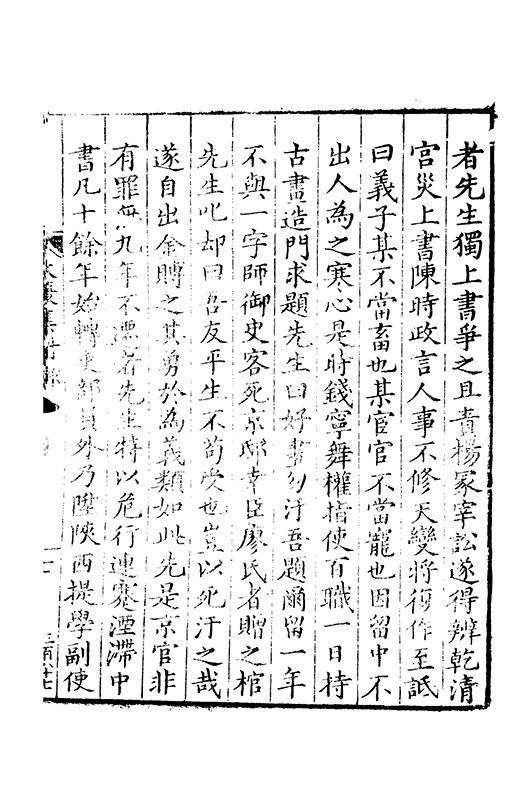 者先生獨上書爭之且責楊冢宰訟遂得辨乾清
宮災上書陳時政言人事不修天變將復作至詆
曰義子某不當畜也某宦官不當寵也因留中不
出人為之寒心是時錢寧舞權指使百職一日持
古畫造門求題先生曰好畫勿汙吾題爾留一年
不與一字師御史客死京邸幸臣廖氏者贈之棺
先生叱却曰吾友平生不苟受也豈以死汙之哉
遂自出金賻之其勇於為義類如此先是京官非
有罪無九年不遷者先生特以危行連蹇湮滯中
書凡十餘年始轉吏部員外乃陞陝西提學副使
三百八十七